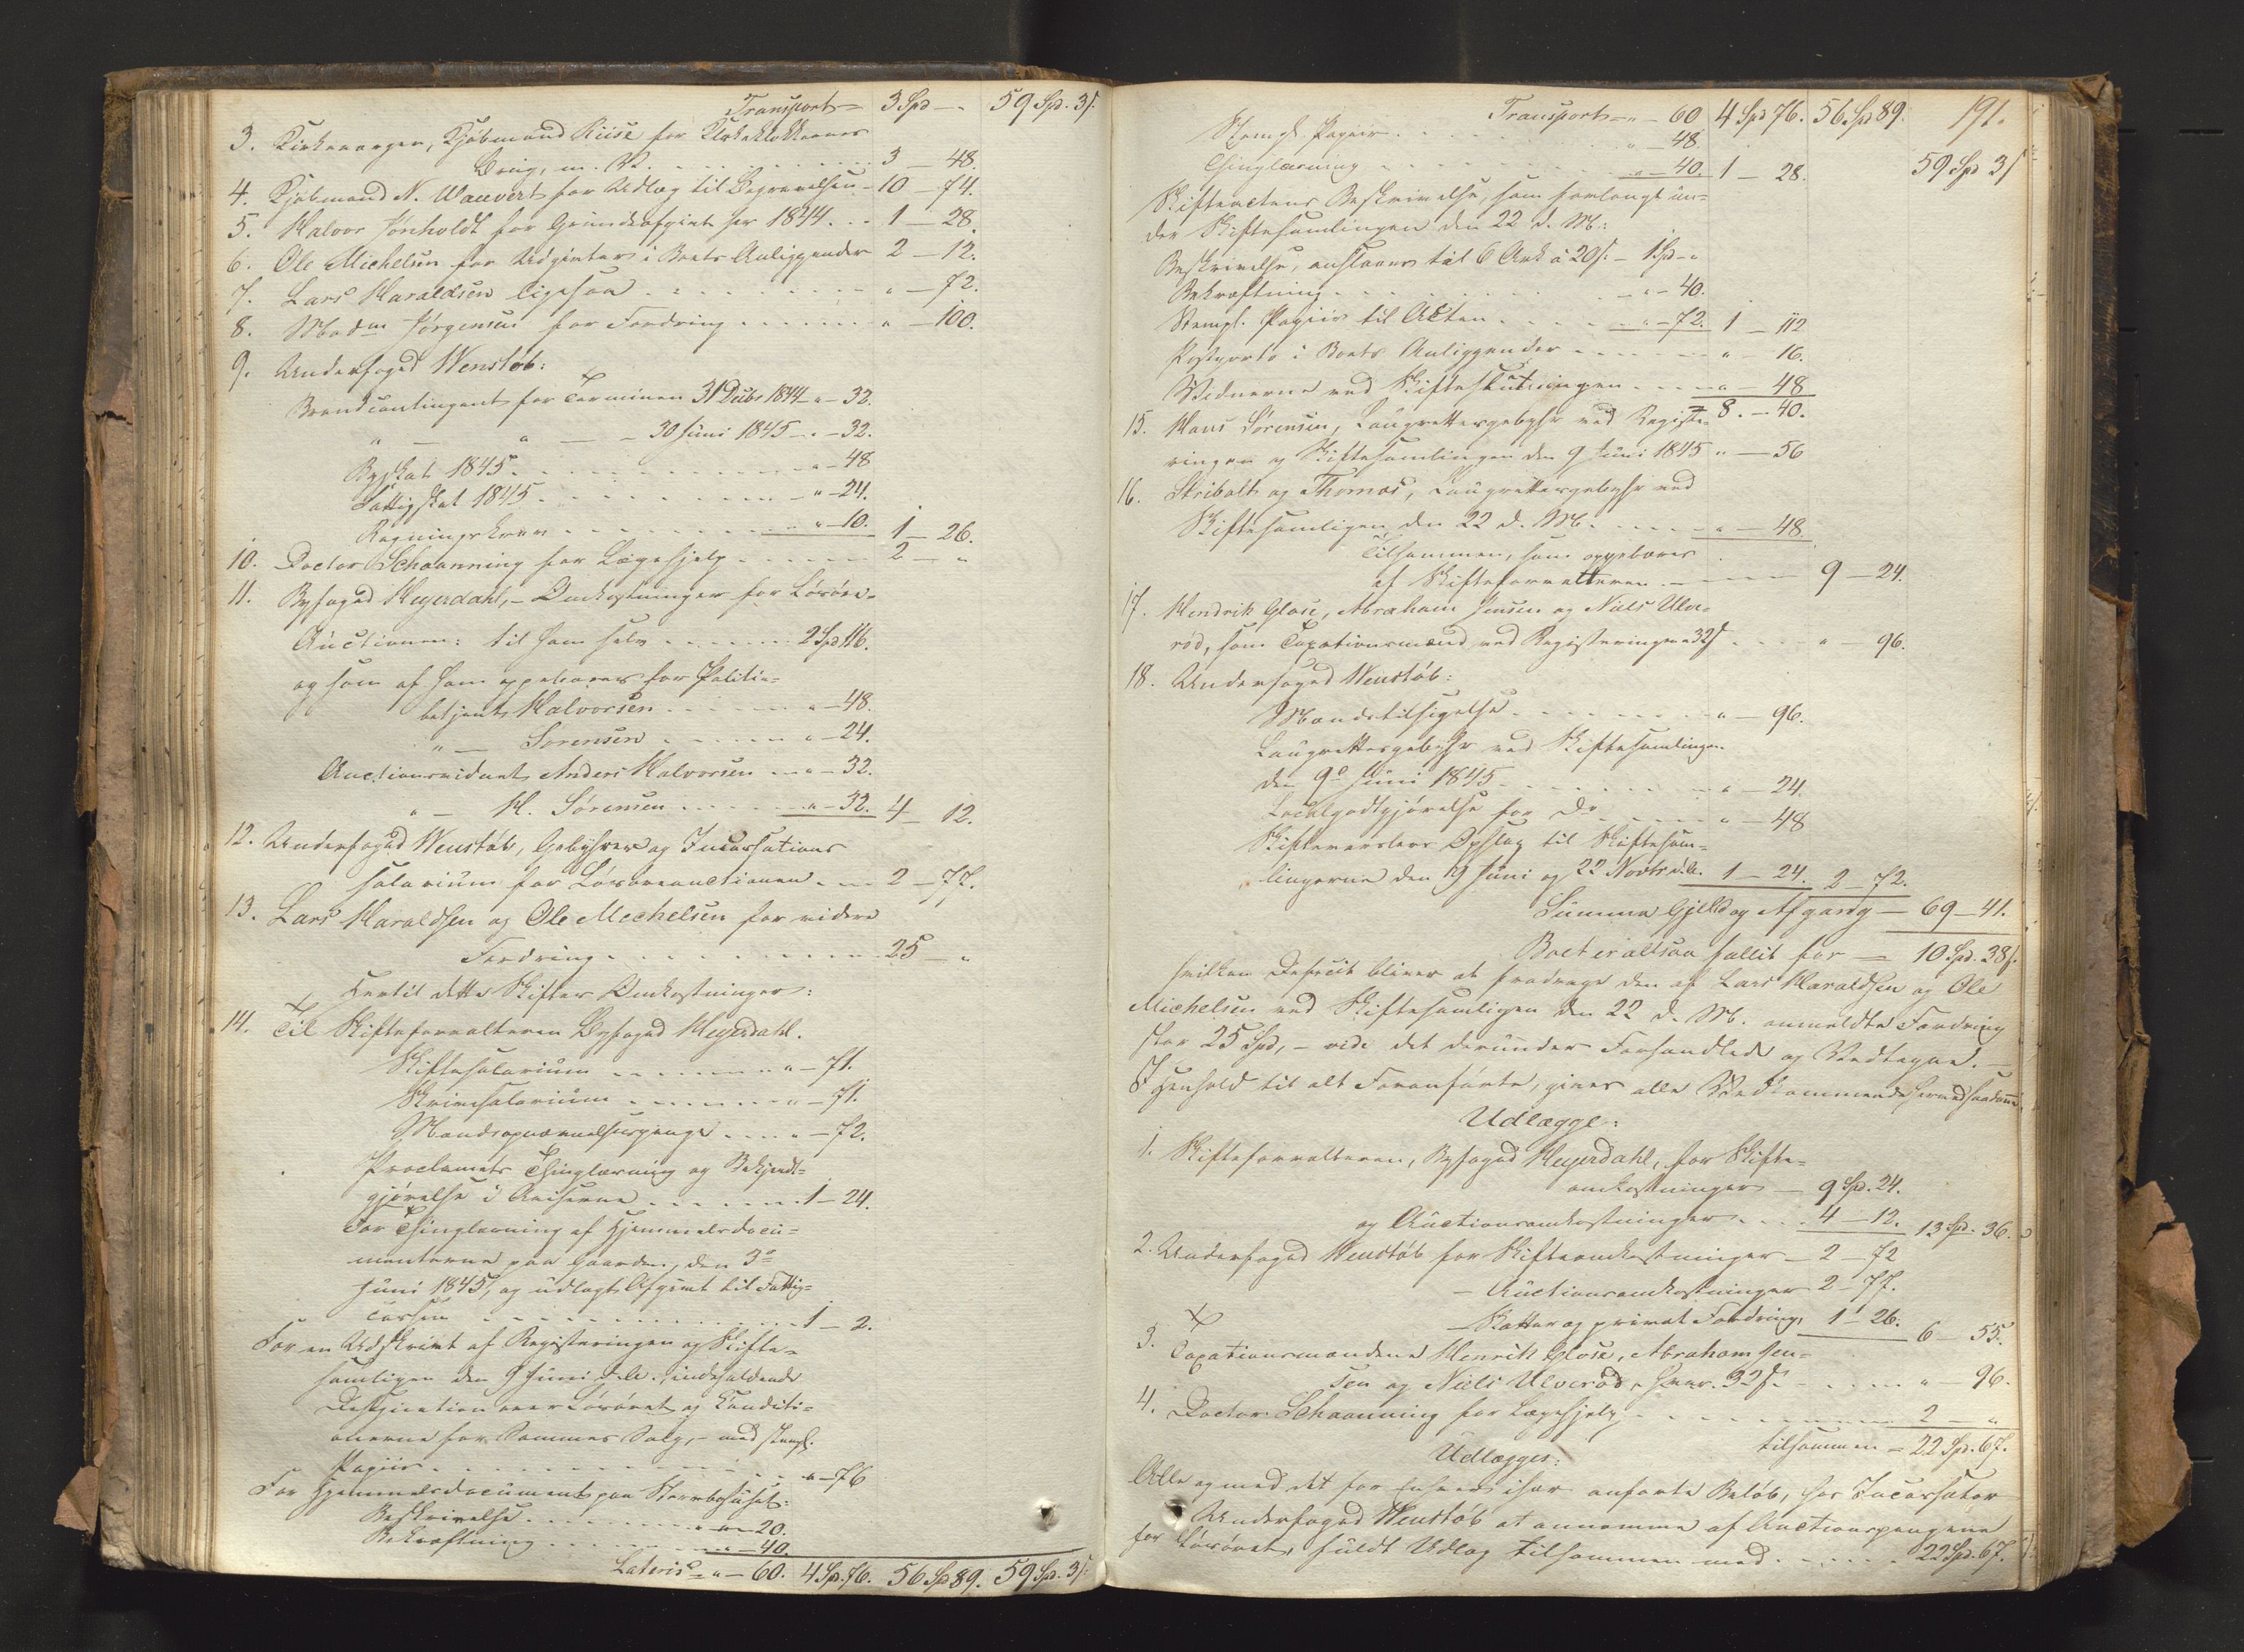 Transport = 3 Spd - „ 59 Spd. 3 s.
3. Kirkeværgen, Kjøbmand Riise for Kirkeklokkernes
Brug, m. V. . . . 3 - 48.
4. Kjøbmand N. Wauvert for Udlæg til Begravelsen - 10 - 74.
5. Halvor Jönholdt for Grundeafgivt for 1844 . . 1 - 28.
6. Ole Michelsen for Udgivter i Boets Anliggender 2 - 12.
7. Lars Haraldsen ligesaa . . . „ - 72.
8. Madm Jörgensen for Fordring . . . „ - 100.
9. Underfoged Wenstöb:
Brandcontingent for Terminen 31 Decbr 1844 - „ - 32.
„ — „ — - 30 Juni 1845 - „ - 32.
Byskat 1845 . . . „ - 48
Fattigskat 1845 . . . „ - 24.
Regningskrav . . . „ - 10. 1 - 26.
10. Doctor Schaanning for Lægehjelp . . . 2 - „
11. Byfoged Heyerdahl, - Omkostninger for Lösöre-
Auctionen: til ham selv . . . 2 Spd 116.
og som af ham oppebæres for Politie-
betjent Halvorsen . . . „ - 48.
„ — Sörensen . . . „ - 24.
Auctionsvidnet Anders Halvorsen . . „ - 32.
„ — H. Sörensen . . . „ - 32. 4 - 12.
12. Underfoged Wenstöb, Gebyhrer og Incassations
salarium for Lösöreauctionen . . . 2 - 77.
13. Lars Haraldsen og Ole Mechelsen for videre
Fordring . . . 25 - „
Hertil dette Skiftes Omkostninger:
14. Til Skifteforvalteren Byfoged Heyerdahl.
Skiftesalarium . . . „ - 71.
Skrivesalarium . . . „ - 71.
Mandsopnævnelsespenge . . . „ - 72.
Proclamats Thinglæsning og Bekjendt-
gjörelse i Aviserne . . . 1 - 24.
For Thinglæsning af Hjemmelsdocu-
menterne paa Gaarden, den 3e
Juni 1845, og udlagt Afgivt til Fattig-
cassen . . . 1 - 2.
For en Udskrivt af Registeringen og Skifte-
samligen den 9 Juni d. A., indeholdende
Designation over Lösöret og Conditi-
onerne for Sammes Salg, - med stempl.
Papiir . . . „ - 76
For Hjemmelsdocument paa Stervbohuset:
Beskrivelse . . . „ - 20.
Bekræftning . . . „ - 40.
Lateris = „ - 60. 4 Spd. 76. 56 Spd 89. 59 Spd. 3 s.
Transport = „ - 60 4 Spd 76. 56 Spd 89. 191.
Stempl. Papiir . . . „ - 48.
Thinglæsning . . . „ - 40. 1 - 28. 59 Spd 3 s
Skifteactens Beskrivelse, som forlangt un-
der Skiftesamlingen den 22 d. M:
Beskrivelse, anslaaes til 6 Ark à 20 s. - 1 Spd - „
Bekræftning . . . „ - 40.
Stempl. Papiir til Acten . . . „ - 72. 1 - 112
Postporto i Boets Anliggender . . . „ - 16.
Vidnerne ved Skifteslutningen . . . „ - 48
= 8. - 40.
15. Hans Sörensen, Laugrettesgebyhr ved Registe-
ringen og Skiftesamlingen den 9 Juni 1845 „ - 56
16. Skibolt og Thomas, Laugrettesgebyhr ved
Skiftesamligen den 22 d. M. . . . „ - 48.
Tilsammen, som oppebæres
af Skifteforvalteren . . . 9 - 24.
17. Hendrik Glose, Abraham Jensen og Niels Ulve-
röd, som Taxationsmænd ved Registeringen a 32 s . . . „ - 96.
18. Underfoged Wenstöb:
Mandstilsigelse . . . „ - 96.
Laugrettesgebyhr ved Skiftesamlingen
den 9e Juni 1845 . . . „ - 24.
Localgodtgjörelse for Do . . . „ - 48
Skifteværslers Opslag til Skiftesam-
lingerne den 9 Juni og 22 Novbr d. A. 1 - 24. 2 - 72.
Summa Gjeld og Afgang — 69 - 41.
Boet er altsaa fallit for — 10 Spd. 38 s.
hvilken Deficit bliver at fradrage den af Lars Haraldsen og Ole
Michelsen ved Skiftesamligen den 22 d. M. anmeldte Fordring
stor 25 Spd, - vide det derunder Forhandlede og Vedtagne. -
I Henhold til alt Foranförte, gives alle Vedkommende hermed saadanne
Udlægge:
1. Skifteforvalteren, Byfoged Heyerdahl, for Skifte-
omkostninger — 9 Spd. 24.
og Auctionsomkostninger . . . 4 - 12. 13 Spd. 36.
2. Underfoged Wenstöb for Skifteomkostninger - 2 - 72
— Auctionsomkostninger 2 - 77.
— Skatter og privat Fordring, 1 - 26. 6 - 55.
3. Taxationsmændene Henrik Glose, Abraham Jen-
sen og Niels Ulveröd, hver 32 s. . . . „ - 96.
4. Doctor Schaanning for Lægehjelp, . . . 2 - „
tilsammen = 22 Spd. 67.
Udlægges:
Alle og med det for Enhver især anförte Belöb, hos Incassator
Underfoged Wenstöb at annamme af Auctionspengene
for Lösöret, fuldt Udlæg tilsammen med . . . 22 Spd. 67.